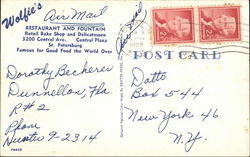 Wolfie's
Air Mail
RESTAURANT AND FOUNTAIN
Retail Bake Shop and Delicatessen
3200 Central Ave. Central Plaza
St. Petersburg
Famous for Good Food the World Over
Air Mail
1958
POST CARD
Dorothy Becherer
Dunnellon Fla
R#2
Phone
Hunter 9-2314
Datto
Box 544
New York 46
N.Y.